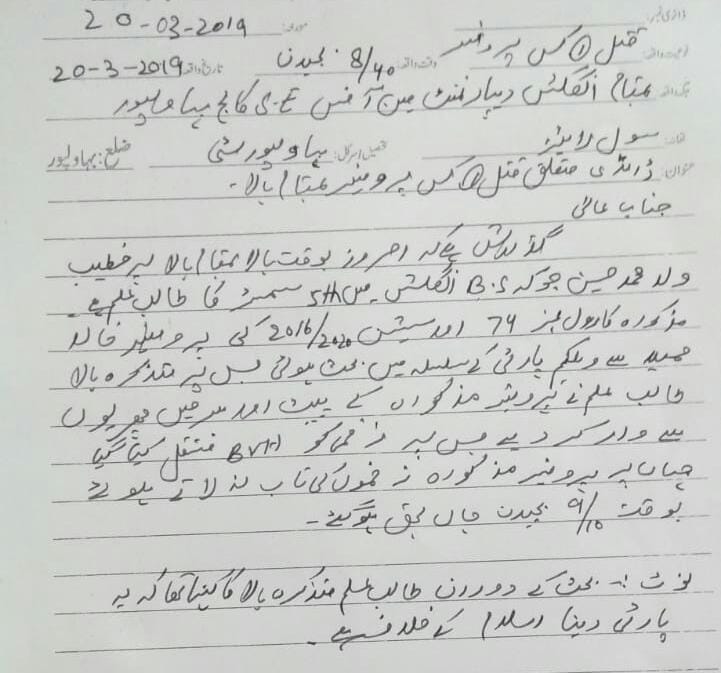 ڈائری نمبر:
مورخہ: 20-03-2019
نوعیت واقعہ: قتل ① کس پروفیسر وقت واقعہ: 8/40 بجیدن تاریخ واقعہ: 20-3-2019
جائے واقعہ: بمقام انگلش ڈیپارٹمنٹ مین آفس S.E کالج بہاولپور
تھانہ: سول لائینز تحصیل/سرکل: بہاولپور سٹی ضلع: بہاولپور
عنوان: ڈائری متعلق قتل ① کس پروفیسر بمقام بالا۔
جناب عالی
گذارش ہے کہ امروز بوقت بالا بمقام بالا پر خطیب
ولد محمد حسین جو کہ B.S انگلش میں 5th سمسٹر کا طالب علم ہے۔
مذکورہ کا رول نمبر 74 اور سیشن 2016/2020 کی پروفیسر خالد
حمید سے ویلکم پارٹی کے سلسلہ میں بحث ہوئی جس پر متذکرہ بالا
طالب علم نے پروفیسر مذکورہ کے پیٹ اور سر میں چھریوں
سے وار کر دیے جس پر زخمی کو BVH منتقل کیا گیا
جہاں پر پروفیسر مذکورہ زخموں کی تاب نہ لاتے ہوئے
بوقت 9/10 بجیدن جاں بحق ہوگئے۔
نوٹ:۔ بحث کے دوران طالب علم متذکرہ بالا کا کہنا تھا کہ یہ
پارٹی دینا اسلام کے خلاف ہے۔